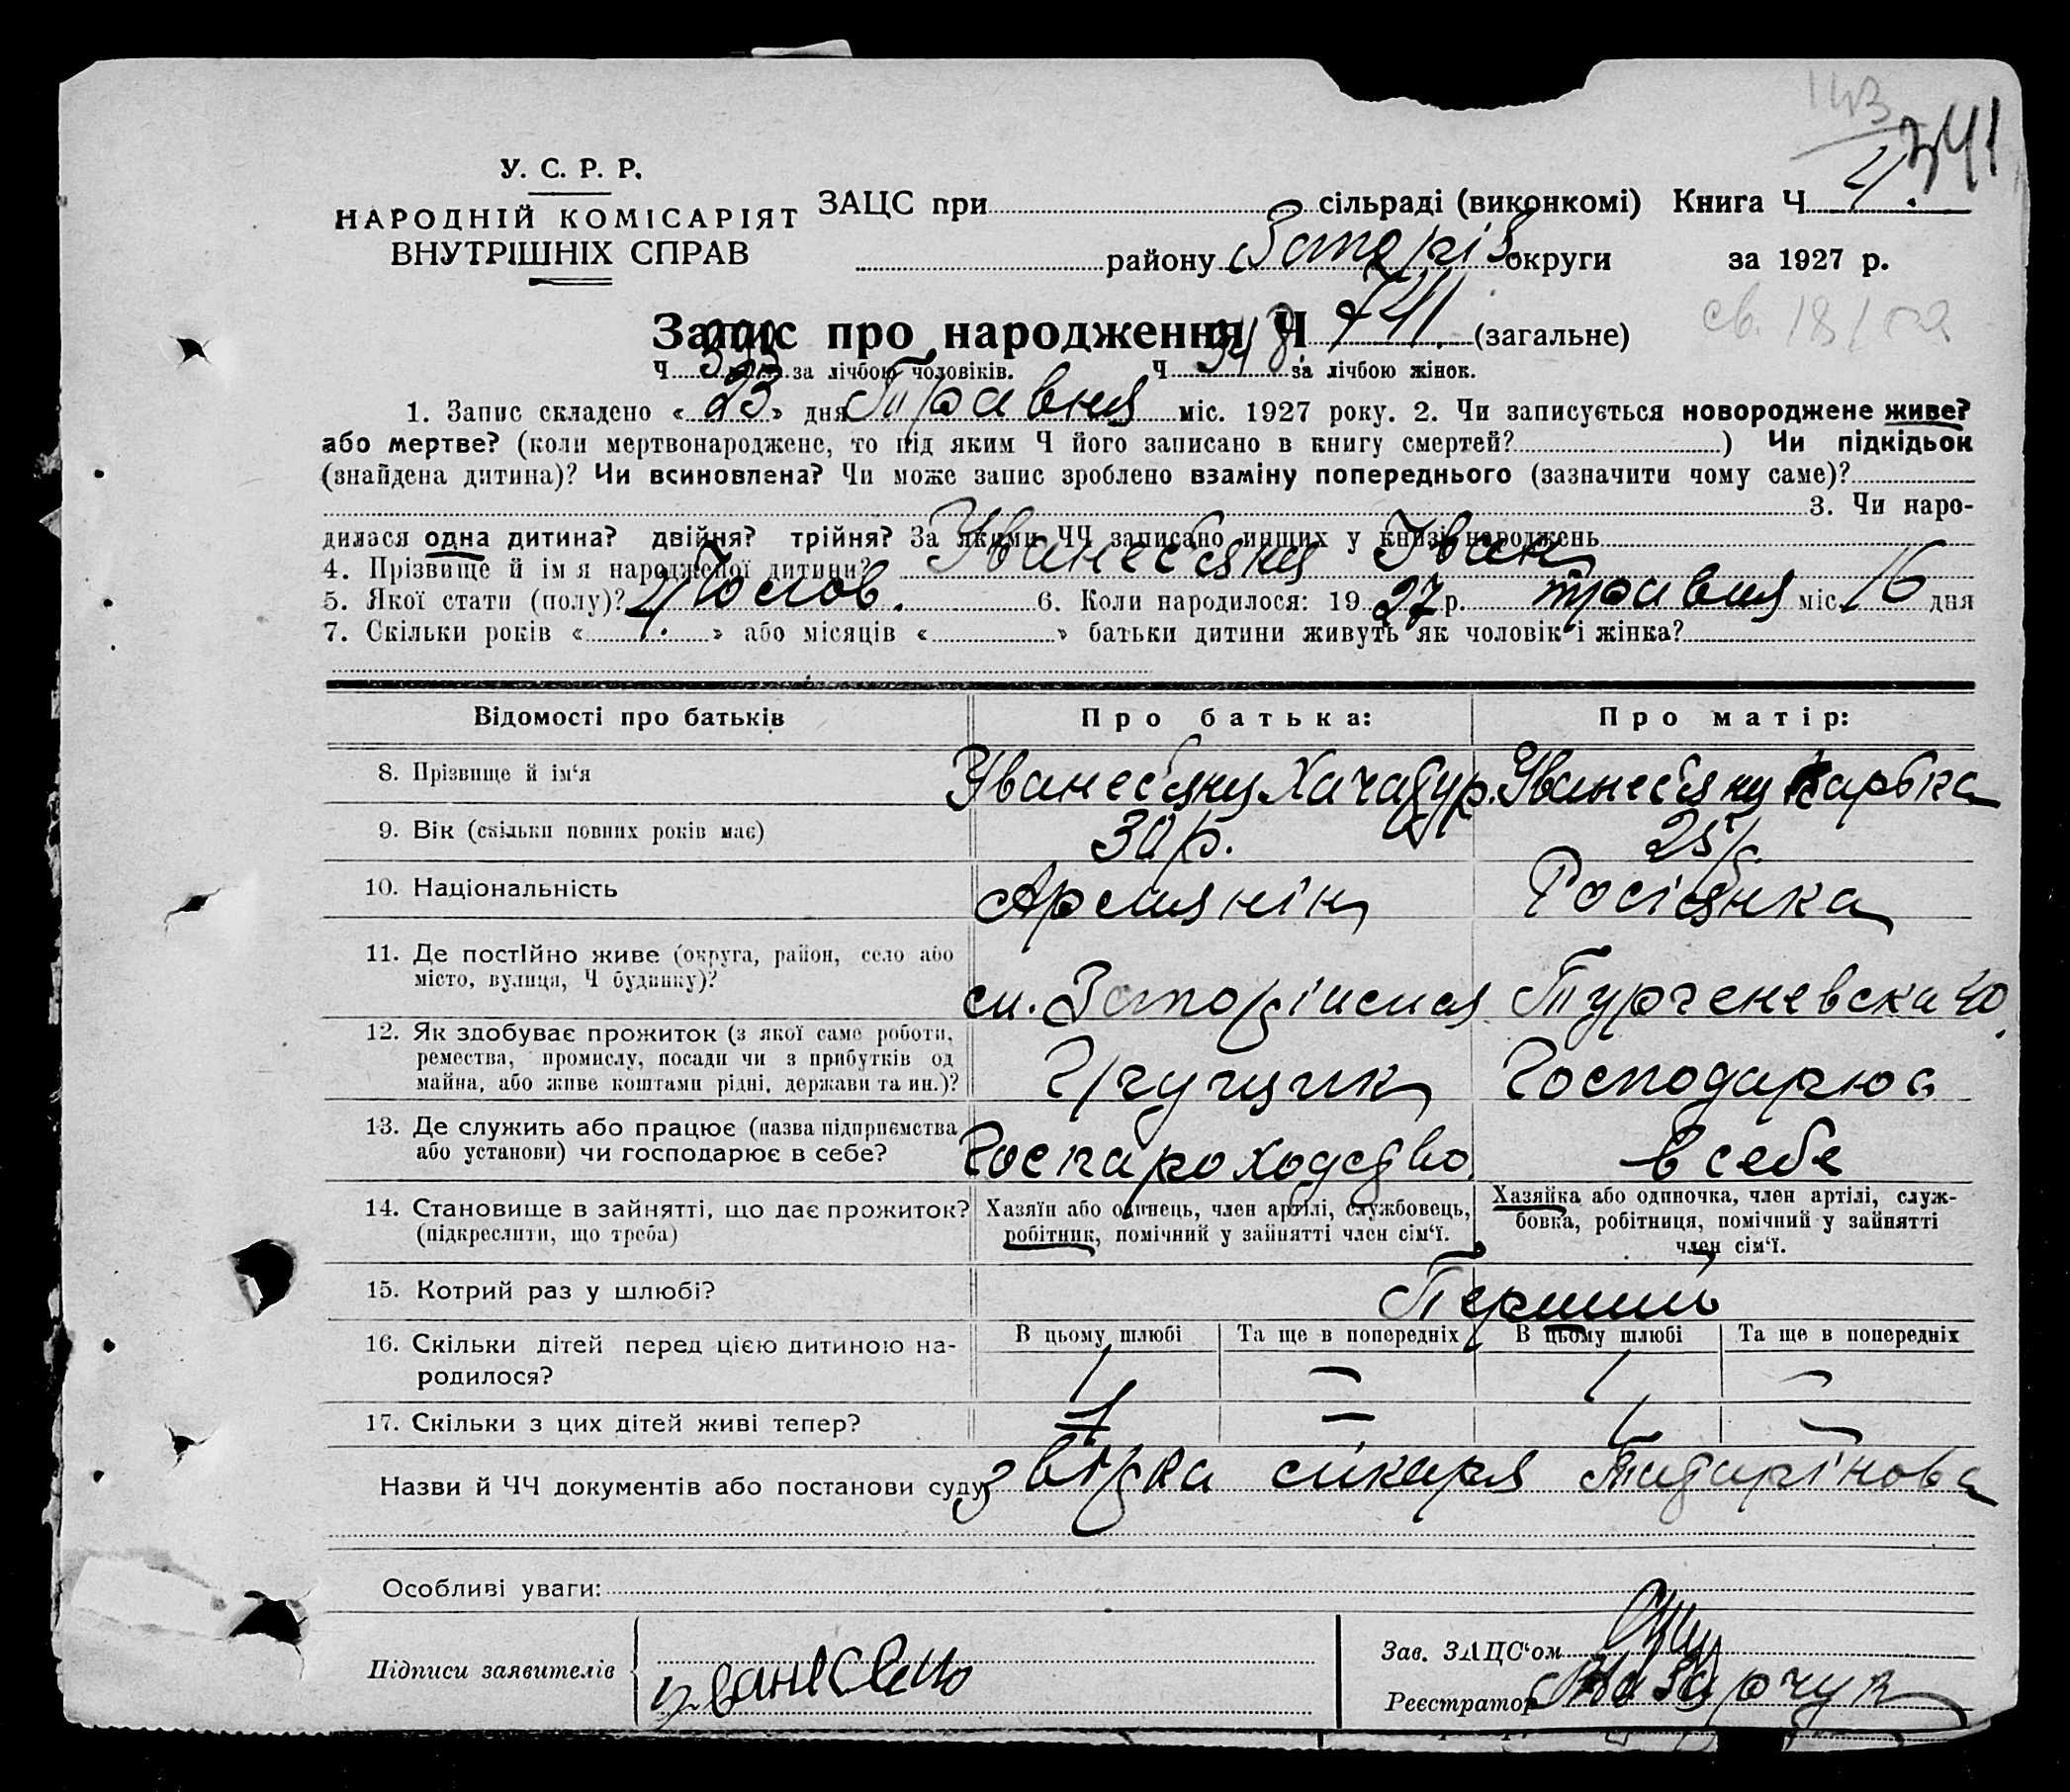 143
341
У. С. Р. Р.
НАРОДНІЙ КОМІСАРІЯТ
ВНУТРІШНІХ СПРАВ
ЗАЦС при сільраді (виконкомі) Книга Ч 4.
району Запоріз. округи за 1927 р.
Запис про народження Ч 741. (загальне)
Ч 393 за лічбою чоловіків. Ч 348 за лічбою жінок.
1. Запис складено « 23 » дня Травня міс. 1927 року. 2. Чи записується новороджене живе?
або мертве? (коли мертвонароджене, то під яким Ч його записано в книгу смертей? ) Чи підкідьок
(знайдена дитина)? Чи всиновлена? Чи може запис зроблено взаміну попереднього (зазначити чому саме)?
3. Чи наро-
дилася одна дитина? двійня? трійня? За якими ЧЧ записано инших у книзі народжень
4. Прізвище й ім я народженої дитини? Уванесьянц Іван
5. Якої стати (полу)? Чолов. 6. Коли народилося: 19 27 р. травня міс. 16 дня
7. Скільки років « 1. » або місяців « » батьки дитини живуть як чоловік і жінка?
Відомості про батьків Про батька: Про матір:
8. Прізвище й ім'я Уванесьянц Хачатур. Уванесьянц
9. Вік (скільки повних років має) 30 р. 25 р.
10. Національність Армянін Росіянка
11. Де постійно живе (округа, район, село або
місто, вулиця, Ч будинку)? Тургеневска 40.
12. Як здобуває прожиток (з якої саме роботи,
ремества, промислу, посади чи з прибутків од
майна, або живе коштами рідні, держави та ин.)? Грущик Господарює
13. Де служить або працює (назва підприємства
або установи) чи господарює в себе? Госпароходство. в себе
14. Становище в зайнятті, що дає прожиток?
(підкреслити, що треба)
Хазяїн або одинець, член артілі, службовець,
робітник, помічний у зайнятті член сім'ї.
Хазяйка або одиночка, член артілі, служ-
бовка, робітниця, помічний у зайнятті
член сім'ї.
15. Котрий раз у шлюбі? Перший
16. Скільки дітей перед цією дитиною на-
родилося?
В цьому шлюбі Та ще в попередніх В цьому шлюбі Та ще в попередніх
1 — 1 —
17. Скільки з цих дітей живі тепер? 1 — 1 —
Назви й ЧЧ документів або постанови суду
Особливі уваги:
Підписи заявителів
Зав. ЗАЦС'ом
Реєстратор Назарчук